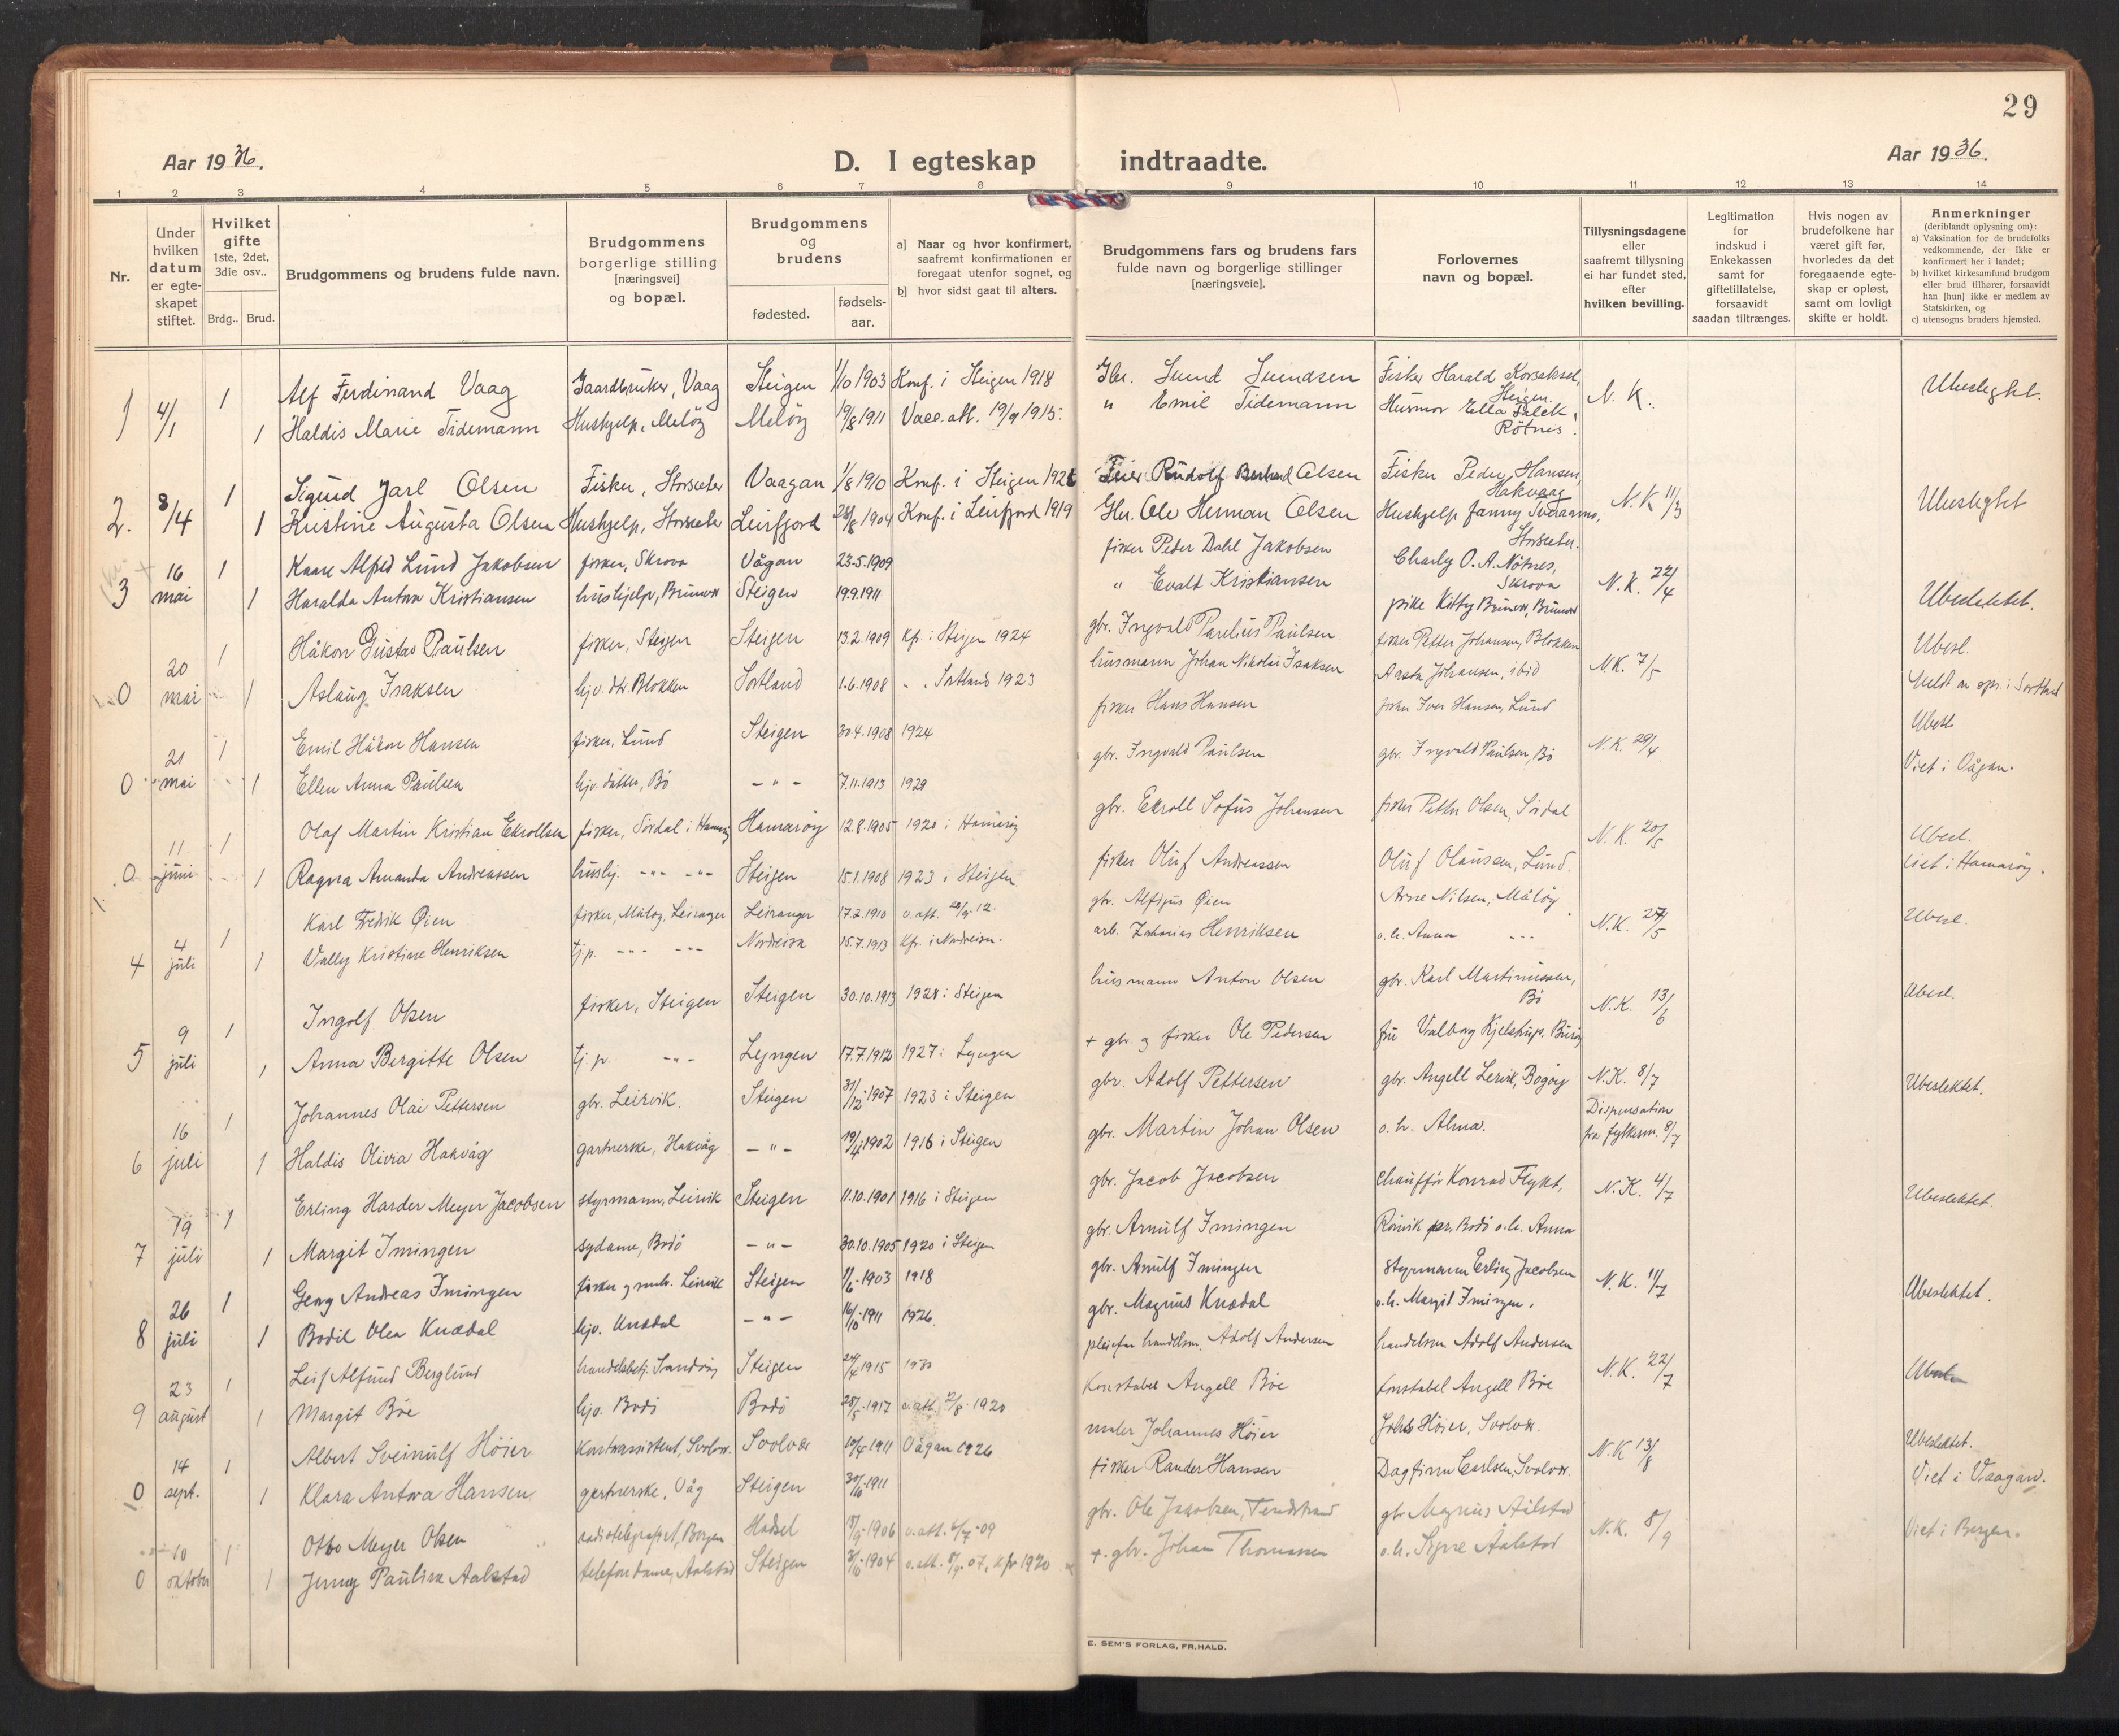 29
Aar 1936.
D. I egteskap
indtraadte.
Aar 1936.
1 2 3 4 5 6 7 8 9 10 11 12 13 14
Nr.
Under hvilken datum er egte-skapet stiftet.
Hvilket gifte 1ste, 2det, 3die osv..
Brdg.. Brud.
Brudgommens og brudens fulde navn.
Brudgommens borgerlige stilling [næringsvei] og bopæl.
Brudgommens og brudens
fødested.
fødsels-aar.
a] Naar og hvor konfirmert, saafremt konfirmationen er foregaat utenfor sognet, og
b] hvor sidst gaat til alters.
Brudgommens fars og brudens fars fulde navn og borgerlige stillinger [næringsveie].
Forlovernes navn og bopæl.
Tillysningsdagene eller saafremt tillysning ei har fundet sted, efter hvilken bevilling.
Legitimation for indskud i Enkekassen samt for giftetillatelse, forsaavidt saadan tiltrænges.
Hvis nogen av brudefolkene har været gift før, hvorledes da det foregaaende egte-skap er opløst, samt om lovligt skifte er holdt.
Anmerkninger (deriblandt oplysning om):
a) Vaksination for de brudefolks vedkommende, der ikke er konfirmert her i landet;
b) hvilket kirkesamfund brudgom eller brud tilhører, forsaavidt han [hun] ikke er medlem av Statskirken, og
c) utensogns bruders hjemsted.
1 4/1 1 Alf Ferdinand Vaag Gaardbruker, Vaag Steigen 1/10 1903 Konf. i Steigen 1918 Gbr. Svend Svendsen Fisker Harald Korsaksel, Steigen. N. K. Ubeslegtet.
1 Haldis Marie Tidemann Hushjelp, Meløy Meløy 19/8 1911 Vacc. att. 19/9 1915. " Emil Tidemann Husmor Ella Falck, Røtnes.
2. 3/4 1 Sigurd Jarl Olsen Fisker, Storsæter Vaagan 1/8 1910 Konf. i Steigen Rudolf Olsen Fisker Peder Hansen, Hakvaag N. K 11/3 Ubeslegtet
1 Kristine Augusta Olsen Hushjelp, Storsæter Leirfjord 1904 Konf. i Leirfjord 1919 Gbr. Ole Herman Olsen Hushjelp Fanny Storsæter.
3 16 mai 1 Kaare Alfred Lund Jakobsen fisker, Skrova Vågan 23.5.1909 fisker Peder Dahl Jakobsen Charly O. A. Nøtnes, Skrova N. K. 22/4 Ubeslektet.
1 Haralda Antora Kristiansen hushjelp, Brunvær Steigen 19.9.1911 " Evald Kristiansen pike Kitty Brunvær, Brunvær
0 20 mai 1 Håkon Gustav Paulsen fisker, Steigen Steigen 13.2.1909 Kf. i Steigen 1924 gbr. Ingvald Parelius Paulsen fisker Petter Johansen, Blokken N.K. 7/5 Ubesl.
1 Aslaug Isaksen hjv. dtr. Blokken Sortland 1.6.1908 " . Sortland 1923 husmann Johan Nikolai Isaksen Aasta Johansen, ibid
0 21 mai 1 Emil Håkon Hansen fisker, Lund Steigen 30.4.1908 1924 fisker Hans Hansen fisker Iver Hansen, Lund N. K. 29/4 Ubesl.
1 Ellen Anna Paulsen hjv. datter, Bø - " - 7.11.1913 1928 gbr. Ingvald Paulsen gbr. Ingvald Paulsen, Bø Viet i Vågan.
0 11 juni 1 Olaf Martin Kristian Ekrollsen fisker, Sørdal i Hamarøy Hamarøy 12.8.1905 1920 i Hamarøy gbr. Ekroll Sofus Johansen fisker Petter Olsen, Sørdal N. K. 20/5 Ubesl.
1 Ragna Amanda Andreassen hushj. -"- -"- Steigen 15.1.1908 1923 i Steigen. fisker Oluf Andreassen Oluf Olaussen, Lund. Viet i Hamarøy.
4 4 juli 1 Karl Fredrik Øien fisker, Måløy, Leiranger Leiranger 17.2.1910 v. att. gbr. Alfigus Øien Arne Nilsen, Måløy N. K. 27/5 Ubesl.
1 Vally Kristine Henriksen tj.p. Nordreisa 15.7.1913 Kf. i Nordreisa. arb. Zakarias Henriksen o. h. Anna
5 9 juli 1 Ingolf Olsen fisker, Steigen Steigen 30.10.1913 1928 i Steigen husmann Anton Olsen gbr. Karl Martinussen, Bø N. K. 13/6 Ubesl.
1 Anna Bergitte Olsen tj. p. -"- Lyngen 17.7.1912 1927 i Lyngen + gbr. og fisker Ole Pedersen fru Valborg Kjelstrup,
6 16 juli 1 Johannes Olai Pettersen gbr. Leirvik. Steigen 31/12-1907 1923 i Steigen gbr. Adolf Pettersen gbr. Angell Lervik, Bogøy N.K. 8/7 Ubeslektet.
1 Haldis Olivia Hakvåg gartnerske, Hakvåg - " - 19/4 1902 1916 i Steigen gbr. Martin Johan Olsen o. h. Alma. Dispensation fra fylkesm. 8/7
7 19 juli 1 Erling Harder Meyer Jacobsen styrmann, Leirvik Steigen 11.10.1901 1916 i Steigen gbr. Jacob Jacobsen Chauffør Konrad Flykt, N. K. 4/7 Ubeslektet.
1 Margit Imingen sydame, Bodø - " - 30.10.1905 1920 i Steigen gbr. Arnulf Imingen Røsvik pr. Bodø o. h. Anna
8 26 juli 1 Georg Andreas Imingen fisker og Leirvik Steigen 1/6-1903 1918 gbr. Arnulf Imingen Styrmann Erling Jacobsen N. K. 11/7 Ubeslektet.
1 Bodil Olea Knædal hjv. Knædal - " - 16/10-1911 1926. gbr. Magnus Knædal o.h. Margit Imingen.
9 23 august 1 Leif Alfund Berglund handelsbetj. Steigen 1915 pleiefar handelsm. Adolf Andersen handelsm Adolf Andersen N. K. 22/7
1 Margit Bøe hjv. Bodø Bodø 28/5-1917 v. att. 2/8-1920 Konstabel Angell Bøe konstabel Angell Bøe
0 14 sept. 1 Albert Sveinulf Høier Kontorassistent, Svolvær. Svolvær 1911 Vågan 1926 maler Johannes Høier Johs Høier, Svolvær. N. K 13/8 Ubeslektet.
1 Klara Antora Hansen gartnerske, Våg Steigen 30/10-1911 fisker Rander Hansen Dagfinn Carlsen, Svolvær. Viet i Vaagan.
0 10 oktober 1 Otto Meyer Olsen radiotelegrafist, Bergen Hadsel 1906 v. att. gbr. Ole Jakobsen, gbr Magnus Aalstad N. K. 8/9 Viet i Bergen.
1 Jenny Pauline Aalstad telefondame, Aalstad Steigen 1904 v. att. kfr 1920 +. gbr. Johan Thomassen o. h. Signe Aalstad
E. SEM'S FORLAG, FR.HALD.